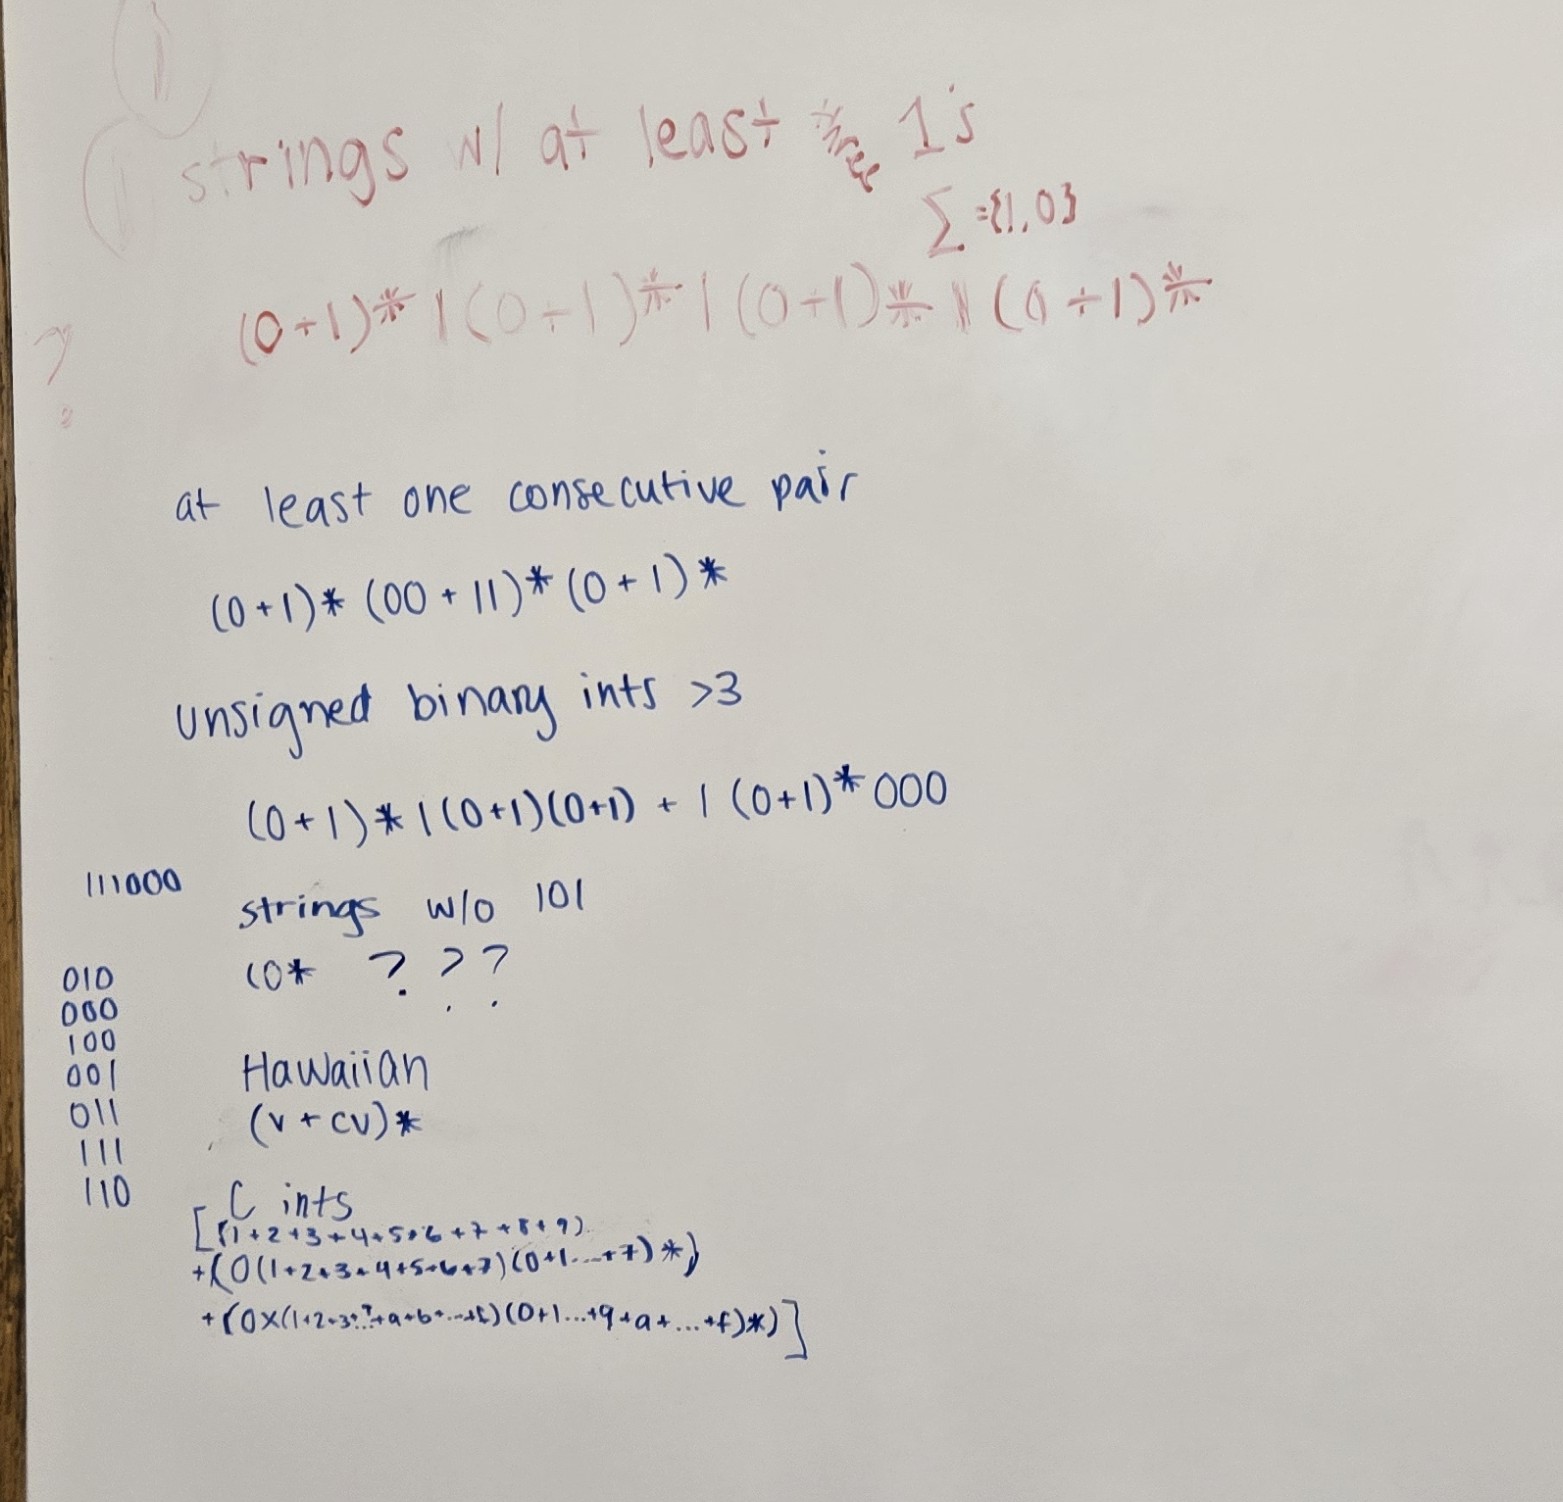 strings w/ at least three 1's
Σ={1,0}
(0+1)* 1 (0+1)* 1 (0+1)* 1 (0+1)*
?
at least one consecutive pair
(0+1)* (00 + 11)* (0+1)*
unsigned binary ints >3
(0+1)* 1 (0+1)(0+1) + 1 (0+1)* 000
111000
strings w/o 101
(0* ? ? ?
010
000
100
001
011
111
110
Hawaiian
(v + cv)*
C ints
[(1+2+3+4+5+6+7+8+9)
+(0(1+2+3+4+5+6+7)(0+1...+7)*)
+(0x(1+2+3+...+a+b+...+f)(0+1...+9+a+...+f)*)]